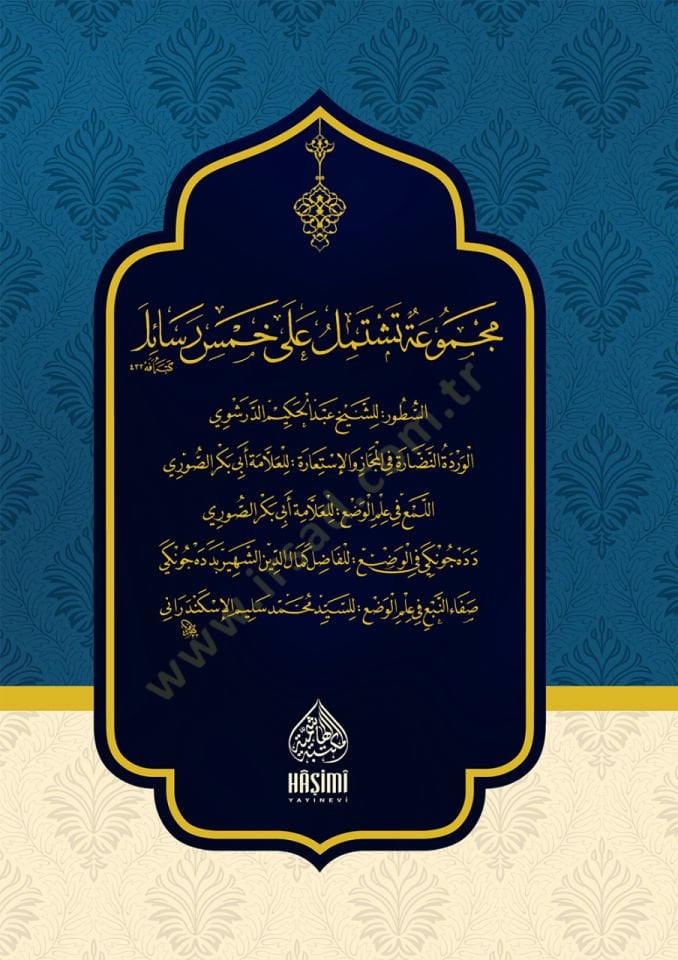 مجموعة تشتمل على خمس رسائل
السطور: للشيخ عبد الحكيم الدرشوي
الوردة النضارة في المجاز والإستعارة: للعلامة أبي بكر الصوري
النبع في علم الوضع: للعلامة أبي بكر الصوري
دده جونكي في الوضع: للفاضل كمال الدين الشهير بدده جونكي
صفاء النبع في علم الوضع: للسيد محمد سليم الإسكندراني
HÂŞİMÎ
YAYINEVİ